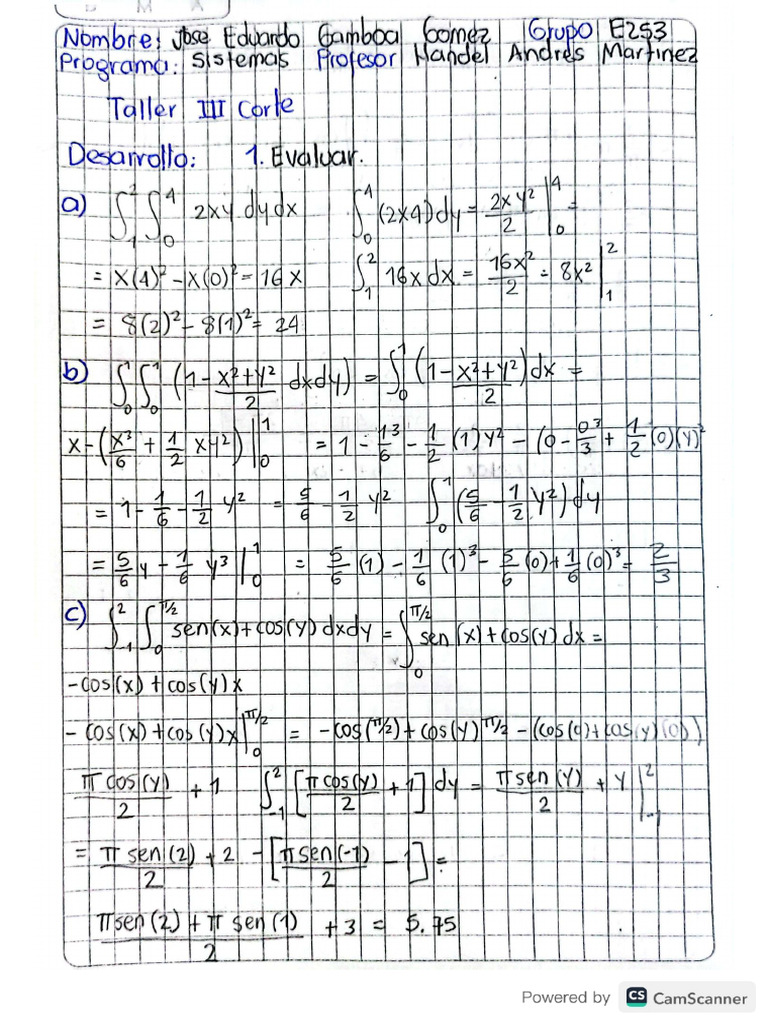 Nombre: Jose Eduardo Gamboa Gomez Grupo E253
Programa: Sistemas Profesor Mandel Andres Martinez
Taller III Corte
Desarrollo: 1. Evaluar.
a) ∫₁² ∫₀⁴ 2xy dy dx ∫₀⁴ (2x4) dy = 2xy²/2 |₀⁴ =
= x(4)² - x(0)² = 16x ∫₁² 16x dx = 16x²/2 = 8x² |₁²
= 8(2)² - 8(1)² = 24
b) ∫₀¹ ∫₀¹ (1 - x²+y²/2 dxdy) = ∫₀¹ (1 - x²+y²/2) dx =
x - (x³/6 + 1/2 xy²) |₀¹ = 1 - 1³/6 - 1/2 (1)y² - (0 - 0³/3 + 1/2 (0)(y)²
= 1 - 1/6 - 1/2 y² = 5/6 - 1/2 y² ∫₀¹ (5/6 - 1/2 y²) dy
= 5/6 y - 1/6 y³ |₀¹ = 5/6 (1) - 1/6 (1)³ - 5/6 (0) + 1/6 (0)³ = 2/3
c) ∫₋₁² ∫₀^π/2 sen(x) + cos(y) dxdy = ∫₀^π/2 sen(x) + cos(y) dx =
-cos(x) + cos(y)x
- cos(x) + cos(y)x |₀^π/2 = -cos(π/2) + cos(y) π/2 - (cos(0) + cos(y)(0))
π cos(y)/2 + 1 ∫₋₁² [π cos(y)/2 + 1] dy = π sen(y)/2 + y |₋₁²
= π sen(2)/2 + 2 - [π sen(-1)/2 - 1] =
π sen(2) + π sen(1)/2 + 3 = 5.75
Powered by CS CamScanner